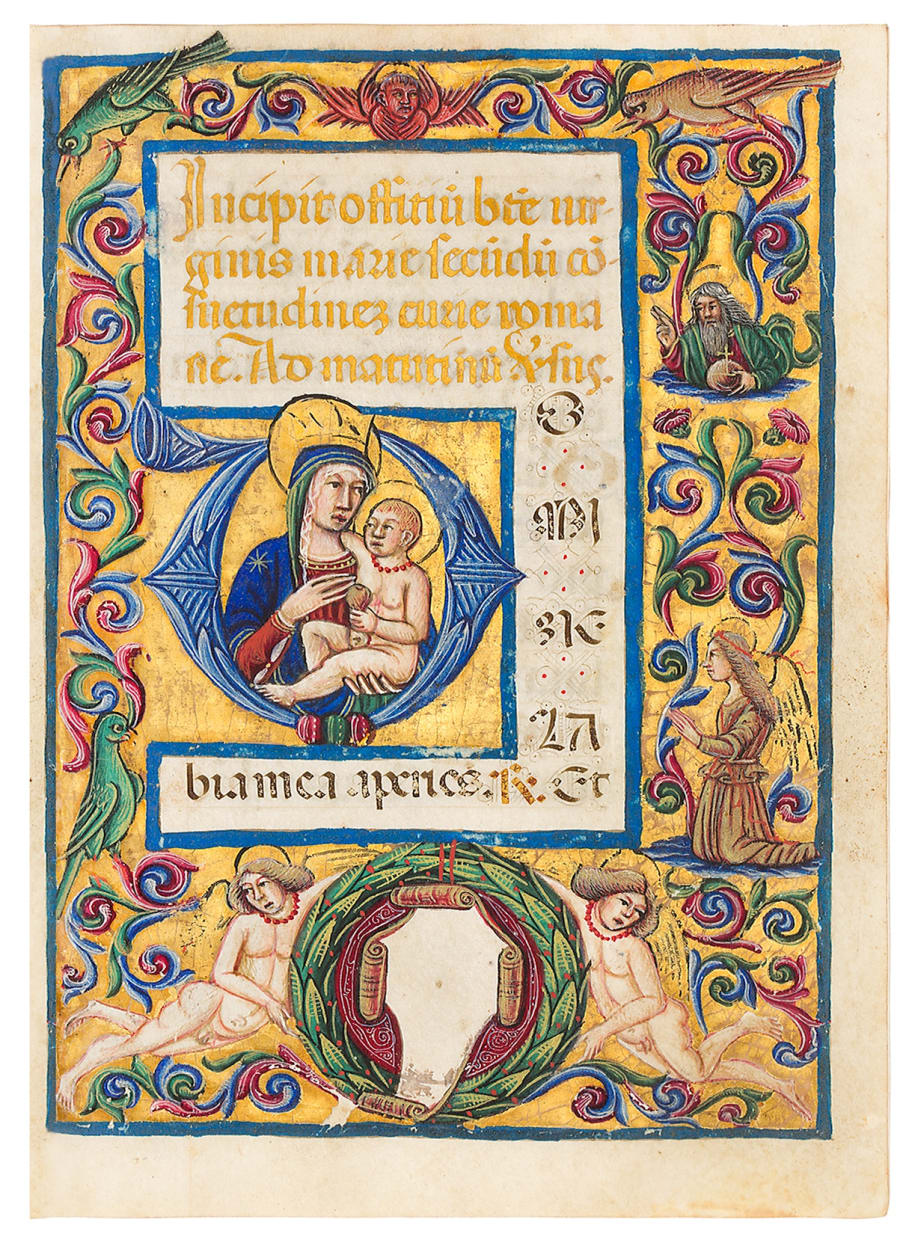 Incipit offitiũ bt̃e uir-
ginis marie secũdũ cõ-
suetudinez curie roma
ne. Ad matutinũ Ꝟsus.
D O
MI
NE
LA
bia mea aperies. ℟. Et